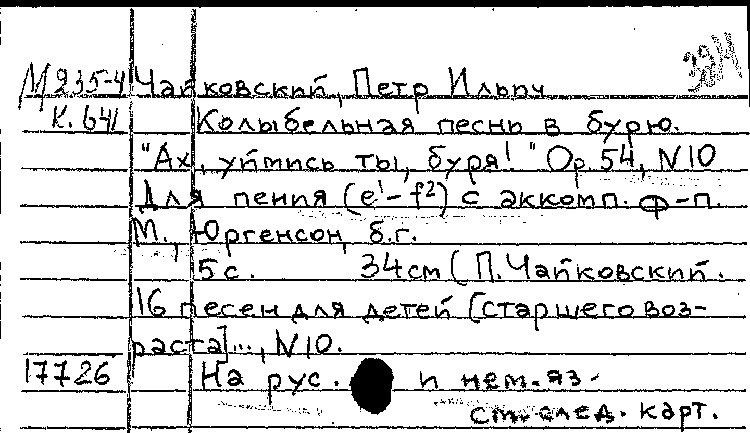 М235-4 Чайковский, Петр Ильич
К. 641 Колыбельная песнь в бурю.
"Ах, уймись ты, буря!" Op. 54, N10
Для пения (e¹-f²) с аккомп. ф-п.
М., Юргенсон, б.г.
5 с. 34см (П. Чайковский.
16 песен для детей [старшего воз-
раста]..., N10.
17726 На рус. и нем. яз.
См. след. карт.